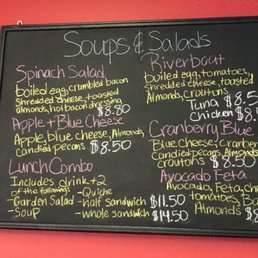 Soups & Salads
Spinach Salad
boiled egg, crumbled bacon
shredded cheese, toasted
almonds, hot bacon dressing
$8.80
Apple & Blue Cheese
Apple, blue cheese, Almonds,
candied pecans $8.50
Lunch Combo
Includes drink + 2
of the following:
- Quiche
- Garden Salad
- half sandwich $11.50
- Soup
- whole sandwich $14.50
Riverboat
boiled egg, tomatoes,
shredded cheese, toasted
Almonds, croutons
Tuna $8.5
Chicken $8.
Cranberry Blue
Blue Cheese,
candied pecans, Almonds
croutons $8.50
Avocado Feta
Avocado, Feta,
tomatoes,
Almonds $8